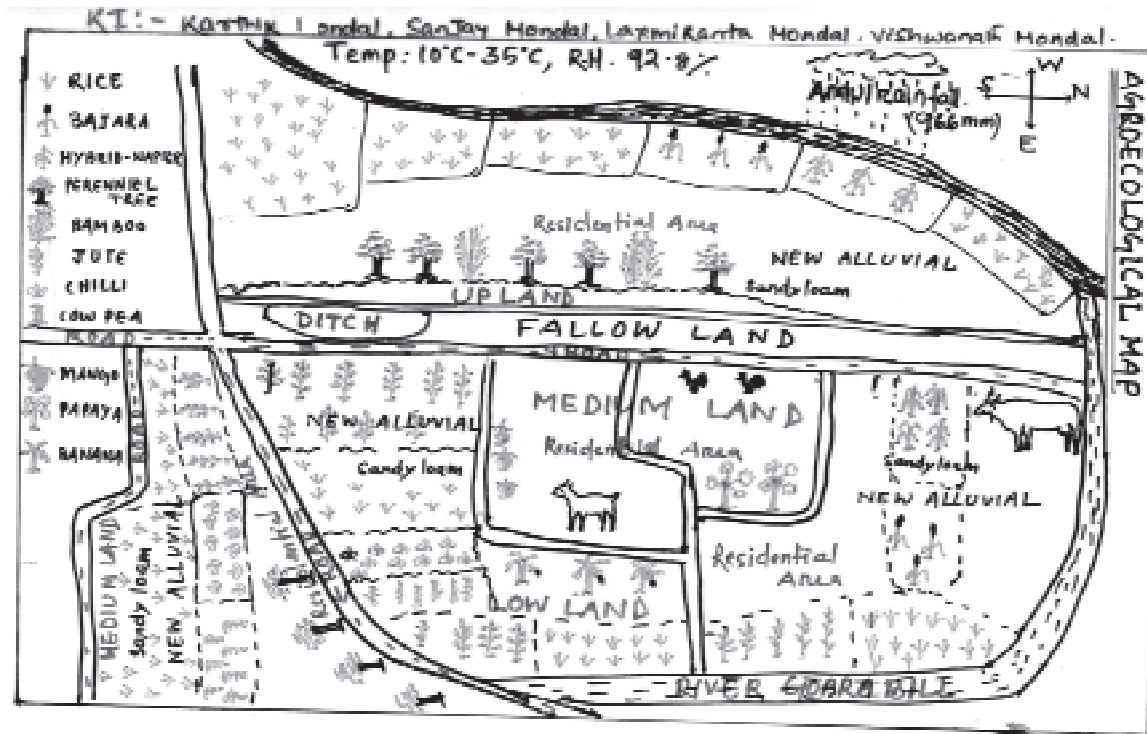 KI:- Karthik Mondal, Sanjay Mondal, Laxmikanta Mondal, Vishwanath Mondal.
Temp: 10°C-35°C, R.H. 92.8%
Annual rainfall
(966mm)
W
S N
E
AGROECOLOGICAL MAP
RICE
BAJARA
HYBRID-NAPIER
PERENNIEL
TREE
BAMBOO
JUTE
CHILLI
COW PEA
ROAD
MANGO
PAPAYA
BANANA
ROAD
Residential Area
NEW ALLUVIAL
Sandy loam
UP LAND
DITCH
FALLOW LAND
ROAD
NEW ALLUVIAL
Sandy loam
MEDIUM LAND
Residential Area
Sandy loam
NEW ALLUVIAL
Residential
Area
LOW LAND
MEDIUM LAND
Sandy loam
NEW ALLUVIAL
NEW ALLUVIAL
RIVER